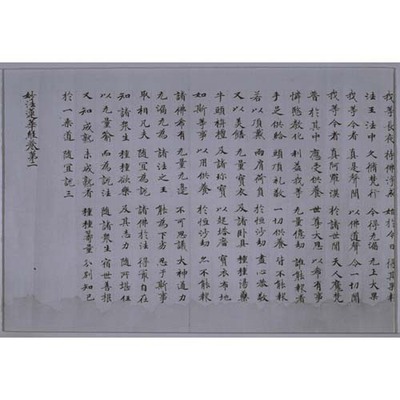 我等長夜 持佛淨戒 始於今日 得其果報
法王法中 久修梵行 今得无漏 无上大果
我等今者 真是聲聞 以佛道聲 令一切聞
我等今者 真阿羅漢 於諸世間 天人魔梵
普於其中 應受供養 世尊大恩 以希有事
憐愍教化 利益我等 无量億劫 誰能報者
手足供給 頭頂礼敬 一切供養 皆不能報
若以頂戴 兩肩荷負 於恒沙劫 盡心恭敬
又以美饍 无量寶衣 及諸臥具 種種湯藥
牛頭栴檀 及諸珍寶 以起塔廟 寶衣布地
如斯等事 以用供養 於恒沙劫 亦不能報
諸佛希有 无量无邊 不可思議 大神通力
无漏无為 諸法之王 能為下劣 忍于斯事
取相凡夫 隨宜為說 諸佛於法 得最自在
知諸衆生 種種欲樂 及其志力 隨所堪任
以无量喻 而為說法 隨諸衆生 宿世善根
又知成熟 未成熟者 種種籌量 分別知已
於一乘道 隨宜說三
妙法蓮華經卷第二